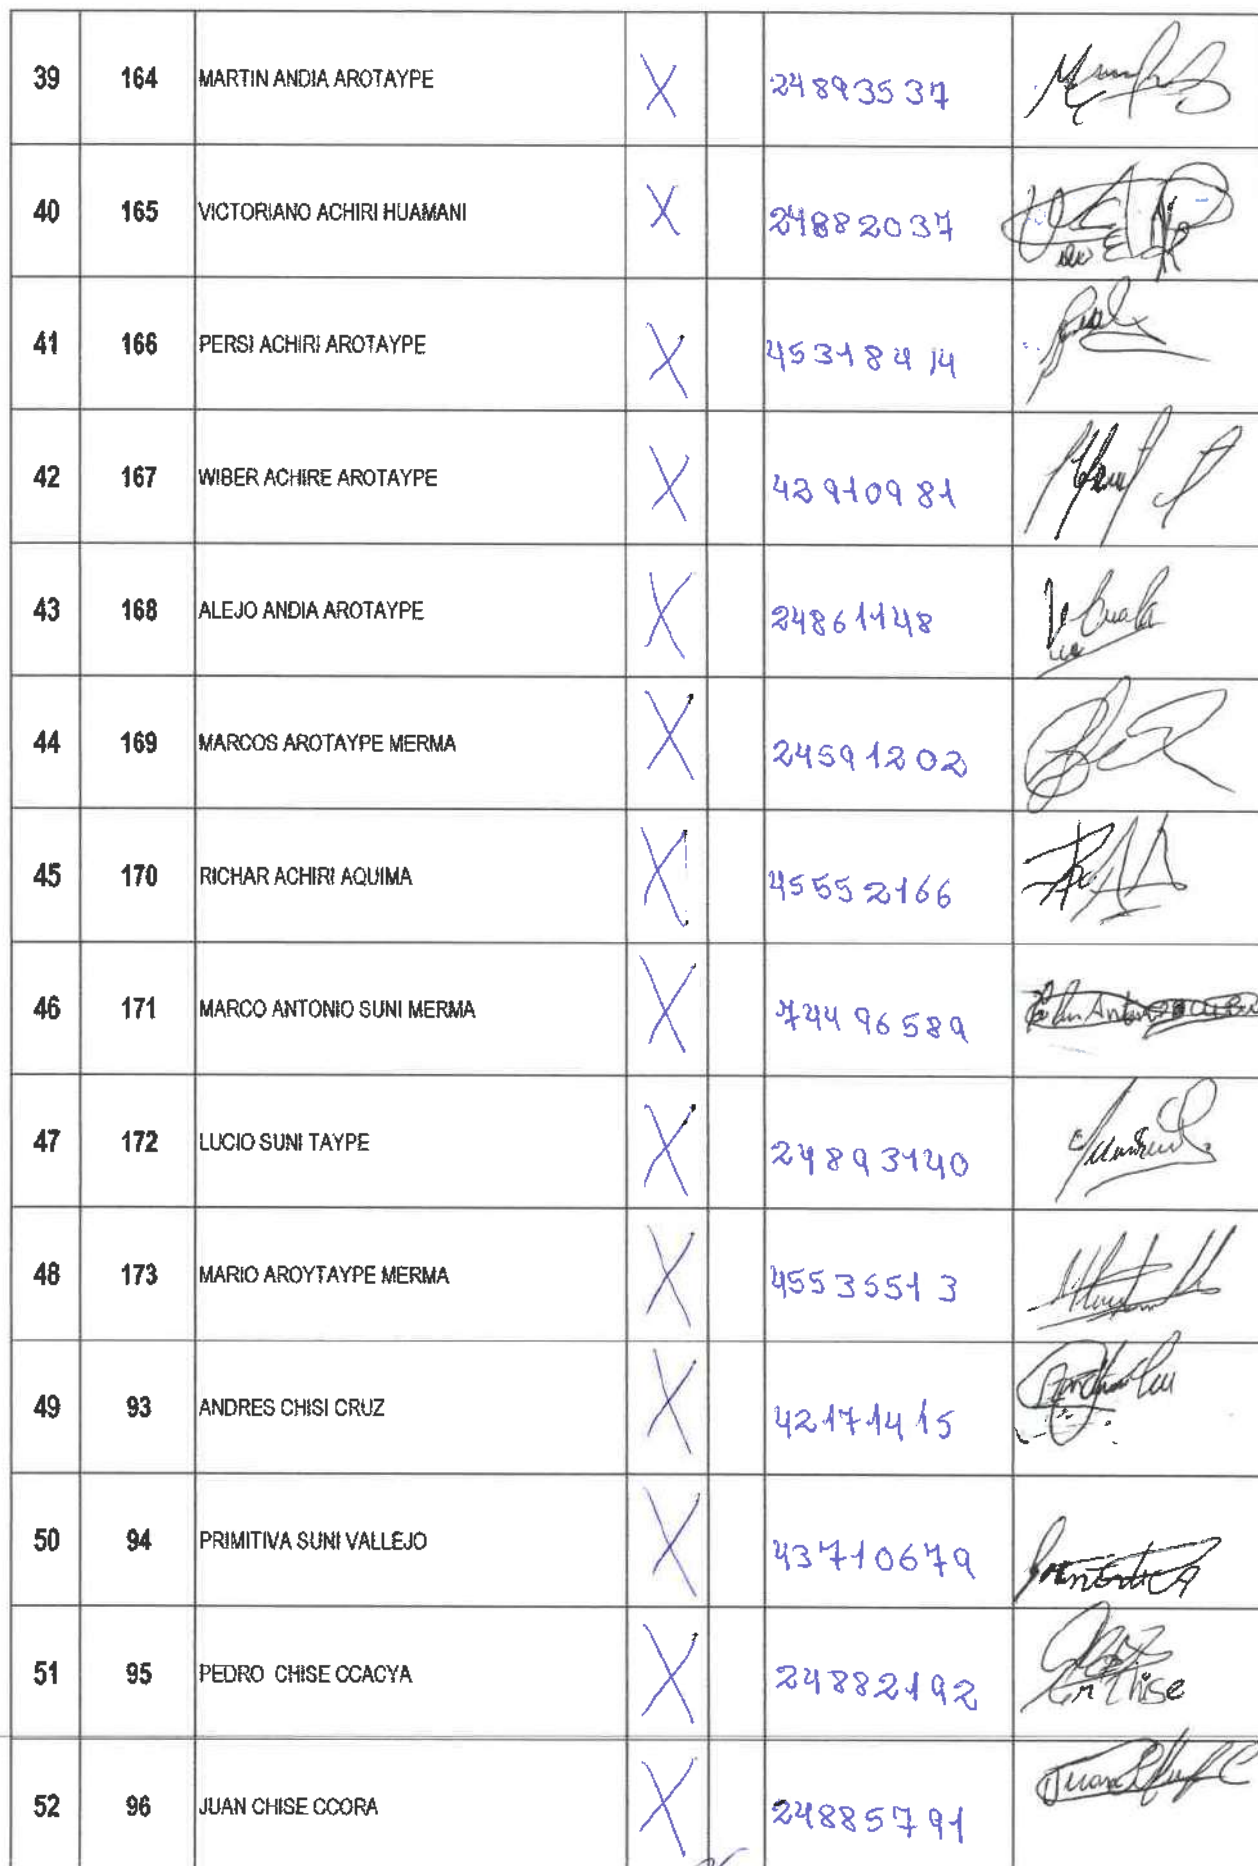 39 164 MARTIN ANDIA AROTAYPE X 24893537
40 165 VICTORIANO ACHIRI HUAMANI X 24882037
41 166 PERSI ACHIRI AROTAYPE X 45318414
42 167 WIBER ACHIRE AROTAYPE X 42910981
43 168 ALEJO ANDIA AROTAYPE X 24861148
44 169 MARCOS AROTAYPE MERMA X 24591202
45 170 RICHAR ACHIRI AQUIMA X 45552166
46 171 MARCO ANTONIO SUNI MERMA X 74496589
47 172 LUCIO SUNI TAYPE X 24893140
48 173 MARIO AROYTAYPE MERMA X 45535513
49 93 ANDRES CHISI CRUZ X 42171415
50 94 PRIMITIVA SUNI VALLEJO X 43710679
51 95 PEDRO CHISE CCACYA X 24882192
52 96 JUAN CHISE CCORA X 24885791